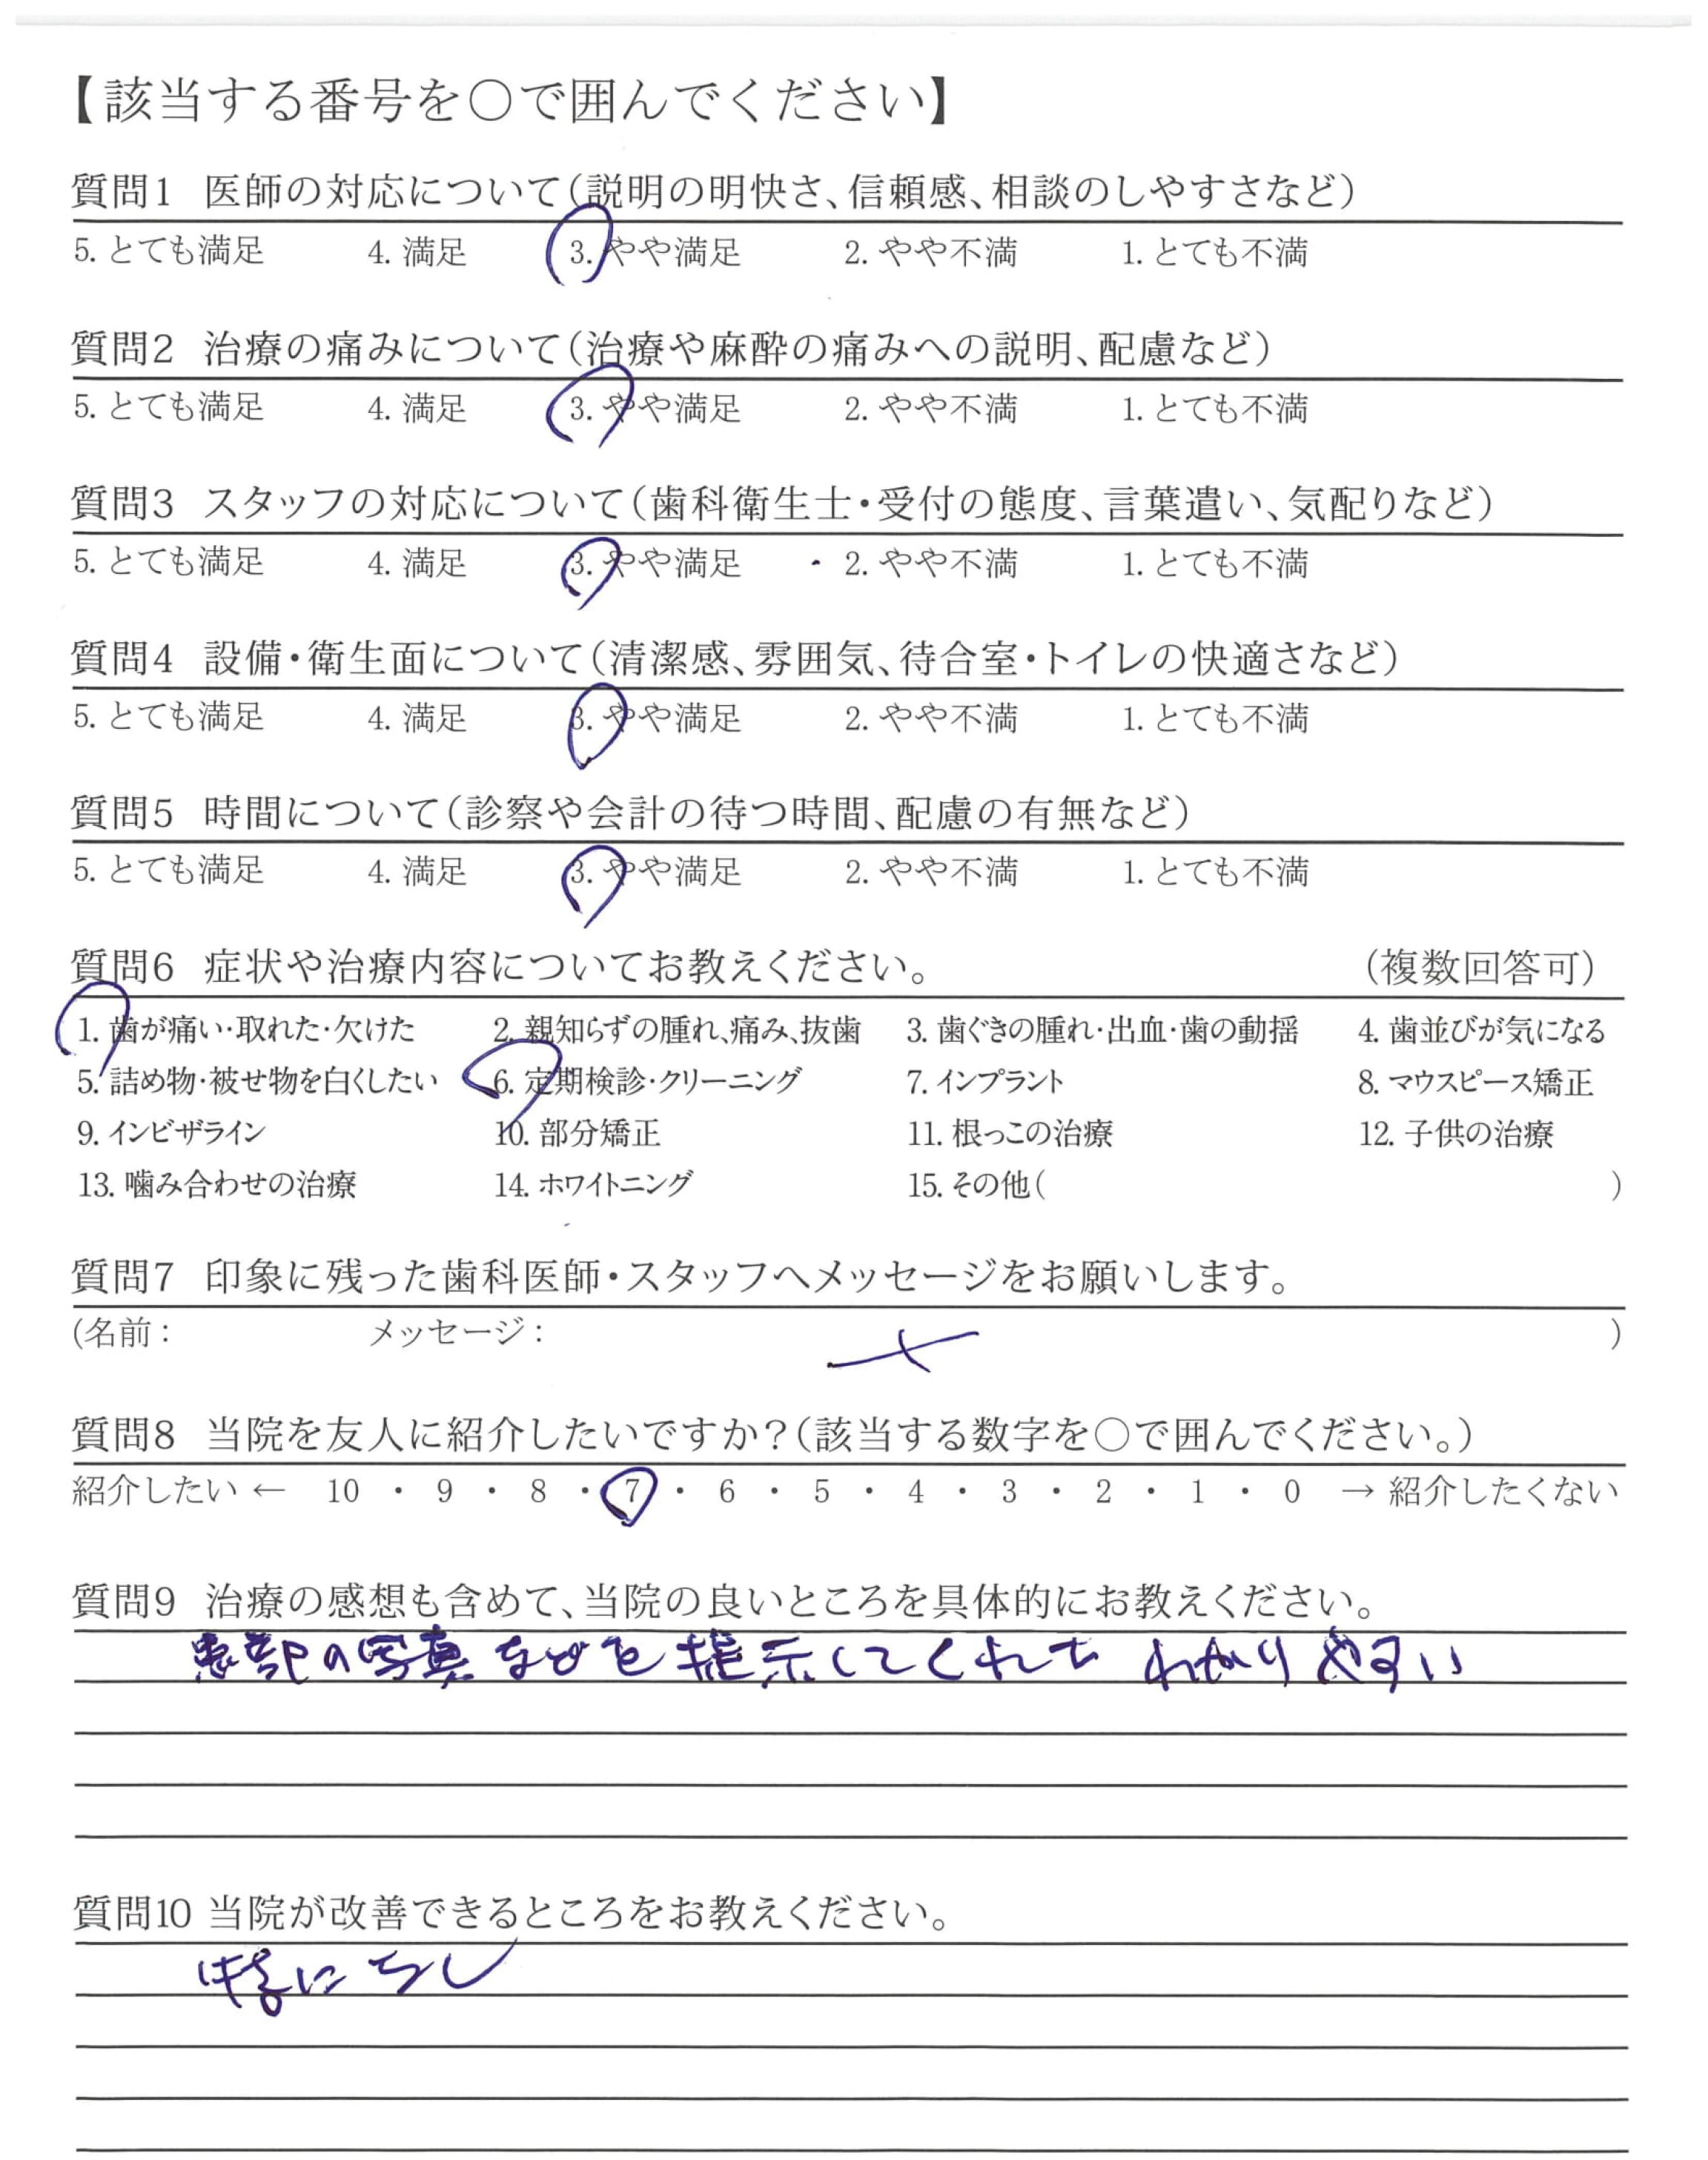 【該当する番号を○で囲んでください】
質問1 医師の対応について（説明の明快さ、信頼感、相談のしやすさなど）
5. とても満足 4. 満足 3. やや満足 2. やや不満 1. とても不満
質問2 治療の痛みについて（治療や麻酔の痛みへの説明、配慮など）
5. とても満足 4. 満足 3. やや満足 2. やや不満 1. とても不満
質問3 スタッフの対応について（歯科衛生士・受付の態度、言葉遣い、気配りなど）
5. とても満足 4. 満足 3. やや満足 2. やや不満 1. とても不満
質問4 設備・衛生面について（清潔感、雰囲気、待合室・トイレの快適さなど）
5. とても満足 4. 満足 3. やや満足 2. やや不満 1. とても不満
質問5 時間について（診察や会計の待つ時間、配慮の有無など）
5. とても満足 4. 満足 3. やや満足 2. やや不満 1. とても不満
質問6 症状や治療内容についてお教えください。 （複数回答可）
1. 歯が痛い・取れた・欠けた 2. 親知らずの腫れ、痛み、抜歯 3. 歯ぐきの腫れ・出血・歯の動揺 4. 歯並びが気になる
5. 詰め物・被せ物を白くしたい 6. 定期検診・クリーニング 7. インプラント 8. マウスピース矯正
9. インビザライン 10. 部分矯正 11. 根っこの治療 12. 子供の治療
13. 噛み合わせの治療 14. ホワイトニング 15. その他（ ）
質問7 印象に残った歯科医師・スタッフへメッセージをお願いします。
（名前： メッセージ： ）
質問8 当院を友人に紹介したいですか？（該当する数字を○で囲んでください。）
紹介したい ← 10 ・ 9 ・ 8 ・ 7 ・ 6 ・ 5 ・ 4 ・ 3 ・ 2 ・ 1 ・ 0 → 紹介したくない
質問9 治療の感想も含めて、当院の良いところを具体的にお教えください。
患部の写真などを提示してくれて わかりやすい
質問10 当院が改善できるところをお教えください。
特になし